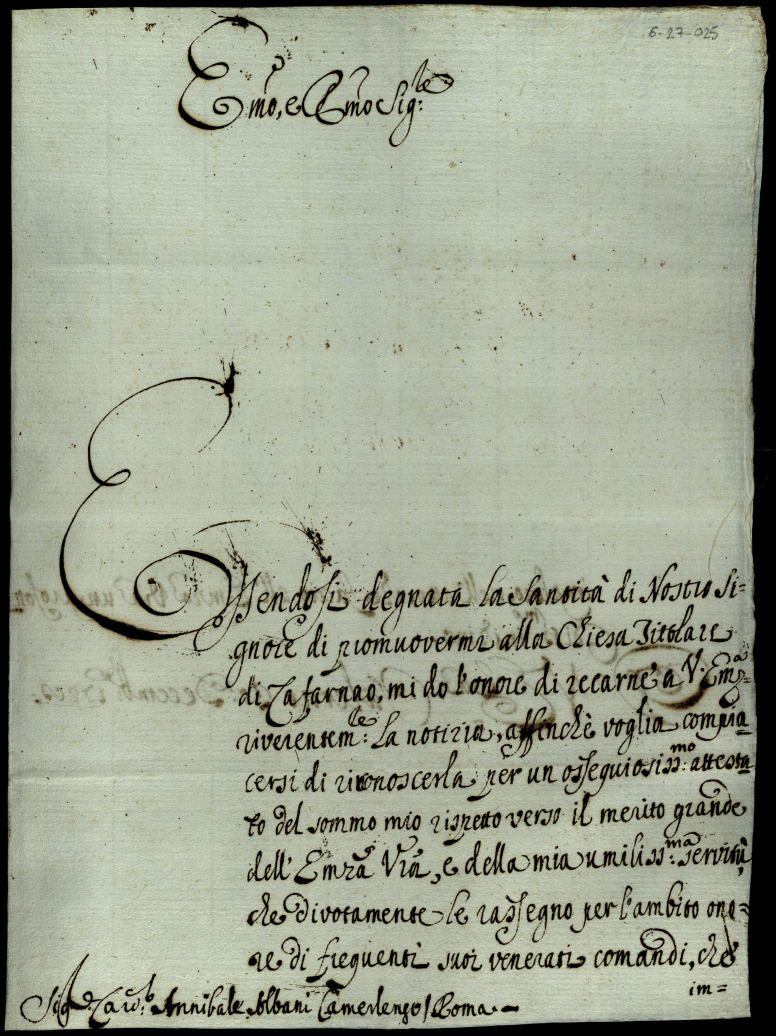 6-27-025
Emo, e Rmo Sig:re
Essendosi degnata la Santità di Nostro Si=
gnore di promuovermi alla Chiesa Titolare
di Cafarnao, mi do l'onore di recarne a V. Emza
riverentem:te la notizia, affinchè voglia compia=
cersi di riconoscerla per un osseguiosiss:mo attesta=
to del sommo mio rispetto verso il merito grande
dell' Emza Vra, e della mia umiliss:ma servitù,
che divotamente le rassegno per l'ambito ono=
re di freguenti suoi venerati comandi, che
im=
Sig.r Card. Annibale Albani Camerlengo / Roma